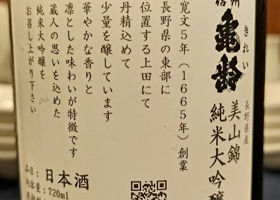 信州
亀齢
きれい
長野県産
美山錦
純米大吟醸
寛文5年(1665年)創業
長野県の東部に
位置する上田にて
丹精込めて
少量を醸しています
華やかな香りと
凛とした味わいが特徴です
蔵人の思いを込めた
純米大吟醸を
お召し上がり下さい
品目:日本酒
内容量:720ml